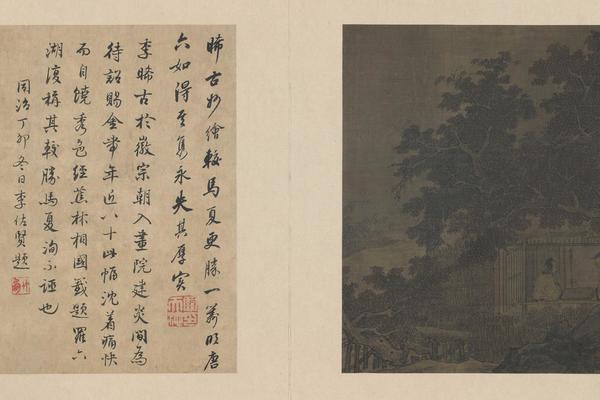 晞古妙繪較馬夏更勝一籌明唐
六如得其雋永失其厚實
李晞古於徽宗朝入畫院建炎間為
待詔賜金帶年近八十此幅沈着痛快
而自饒秀色經蕉林相國籤題羅六
湖復稱其較勝馬夏洵不誣也
同治丁卯冬日李佐賢題